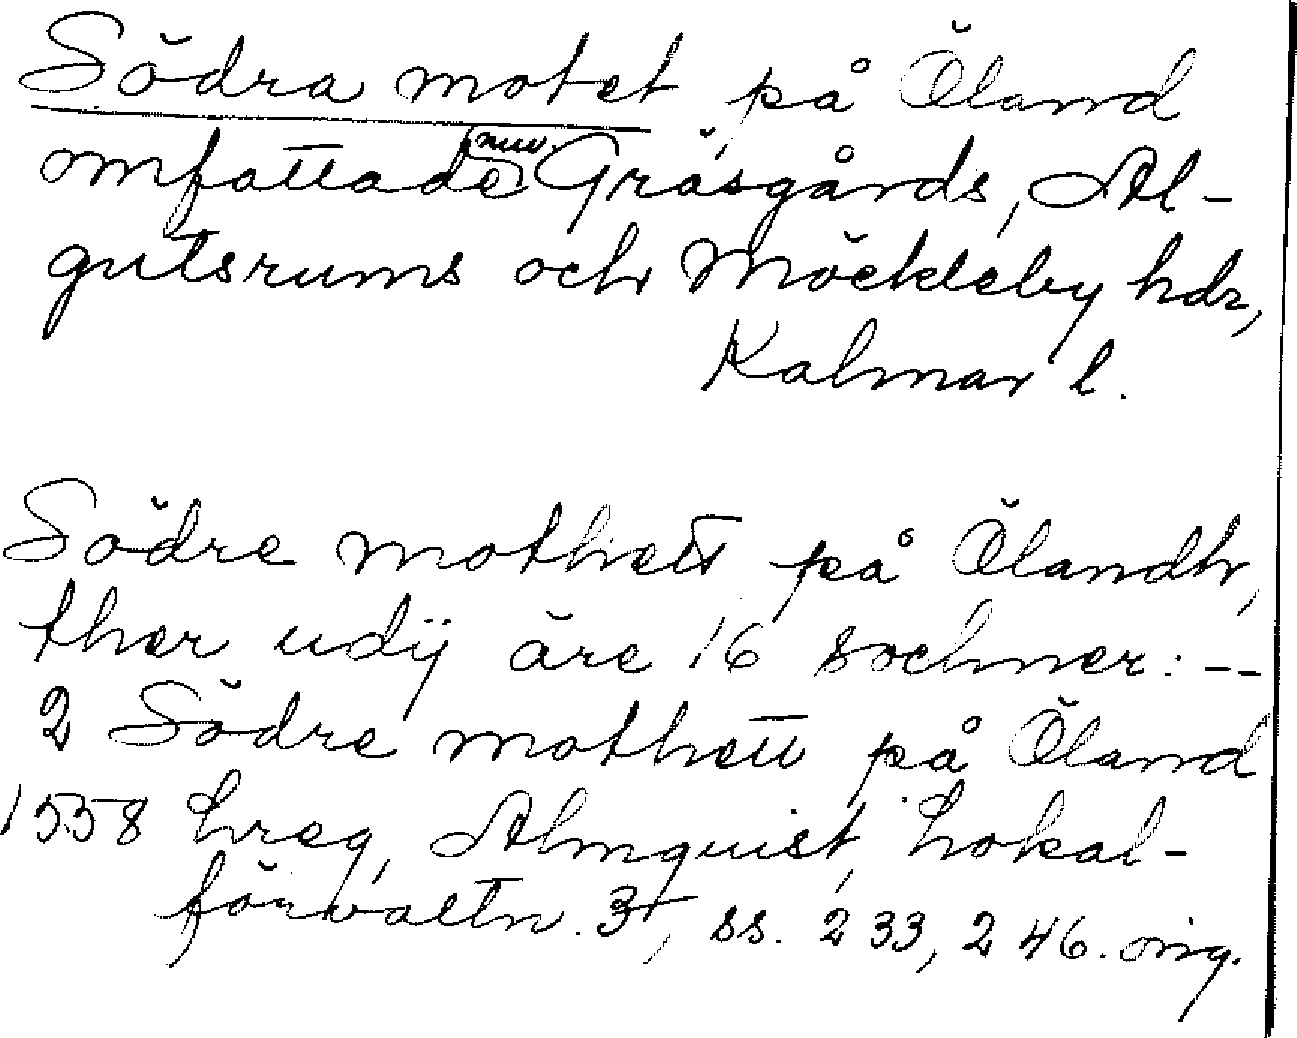 Södra motet på Öland
omfattade nuv. Gräsgårds, Al-
gutsrums och Möckleby hdr,
Kalmar l.
Södre mothett på Ölandh,
ther udij äre 16 sochner: --
2 Södre mothett på Öland
1558 Lreg, Almquist, Lokal-
förvaltn. 3, ss. 233, 246. orig.